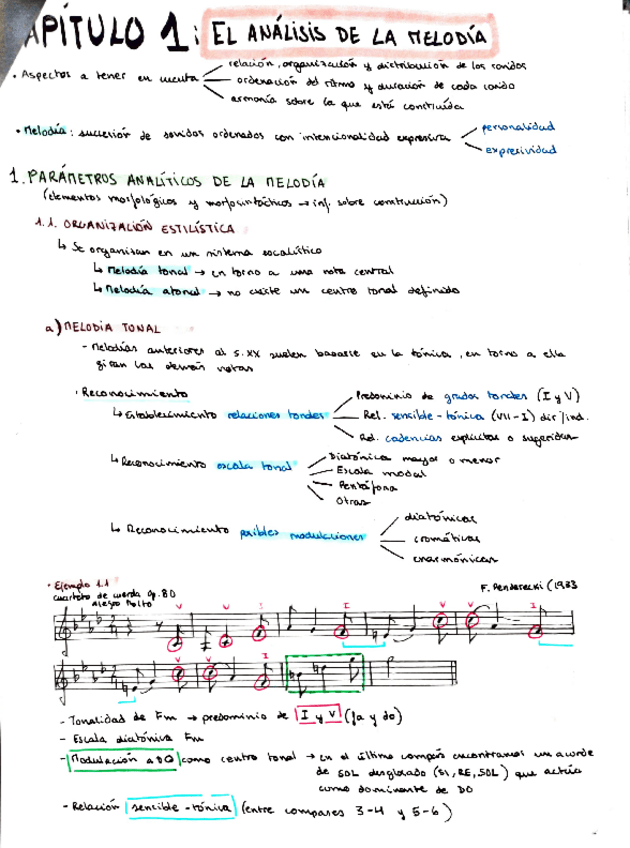 CAPÍTULO 1: EL ANÁLISIS DE LA MELODÍA
• Aspectos a tener en cuenta
relación, organización y distribución de los sonidos
ordenación del ritmo y duración de cada sonido
armonía sobre la que está construida
• Melodía: sucesión de sonidos ordenados con intencionalidad expresiva
personalidad
expresividad
1. PARÁMETROS ANALÍTICOS DE LA MELODÍA
(elementos morfológicos y morfosintácticos → inf. sobre construcción)
1.1. ORGANIZACIÓN ESTILÍSTICA
↳ Se organizan en un sistema escalístico
↳ Melodía tonal → en torno a una nota central
↳ Melodía atonal → no existe un centro tonal definido
a) MELODÍA TONAL
- Melodías anteriores al s. XX suelen basarse en la tónica, en torno a ella
giran las demás notas
· Reconocimiento
↳ Establecimiento relaciones tonales
Predominio de grados tonales (I y V)
Rel. sensible-tónica (VII-I) dir/ind.
Rel. cadencias explícitas o sugeridas
↳ Reconocimiento escala tonal
Diatónica mayor o menor
Escala modal
Pentáfona
Otras
↳ Reconocimiento posibles modulaciones
diatónicas
cromáticas
enarmónicas
• Ejemplo 1.1
cuarteto de cuerda Op. 80
Allegro Molto
F. Penderecki (1933
V V I V V I
V V I
- Tonalidad de Fm → predominio de I y V (fa y do)
- Escala diatónica Fm
- Modulación a DO como centro tonal → en el último compás encontramos un acorde
de SOL desglosado (SI, RE, SOL) que actúa
como dominante de DO
- Relación sensible-tónica (entre compases 3-4 y 5-6)